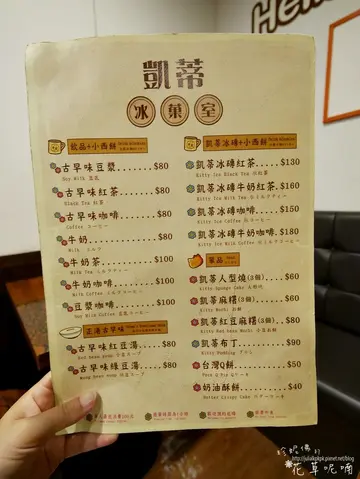 凱蒂
冰菓室
飲品+小西餅
古早味豆漿........$80
Soy Milk 豆乳
古早味紅茶........$80
Black Tea 紅茶
古早味咖啡........$80
Coffee コーヒー
牛奶............$80
Milk ミルク
牛奶茶..........$100
Milk Tea ミルクティー
牛奶咖啡........$100
豆漿咖啡........$100
正港古早味
古早味紅豆湯......$80
古早味綠豆湯......$80
凱蒂冰磚+小西餅
凱蒂冰磚紅茶.....$130
凱蒂冰磚牛奶紅茶.$160
凱蒂冰磚咖啡.....$150
凱蒂冰磚牛奶咖啡.$180
單品
凱蒂人型燒(3個)....$60
凱蒂麻糬(3個)......$80
Kitty Mochi お餅
凱蒂紅豆麻糬(3個)..$80
凱蒂布丁..........$90
Kitty Pudding プリン
台灣Q餅..........$50
奶油酥餅..........$40
Butter Crispy Cake
花草呢喃